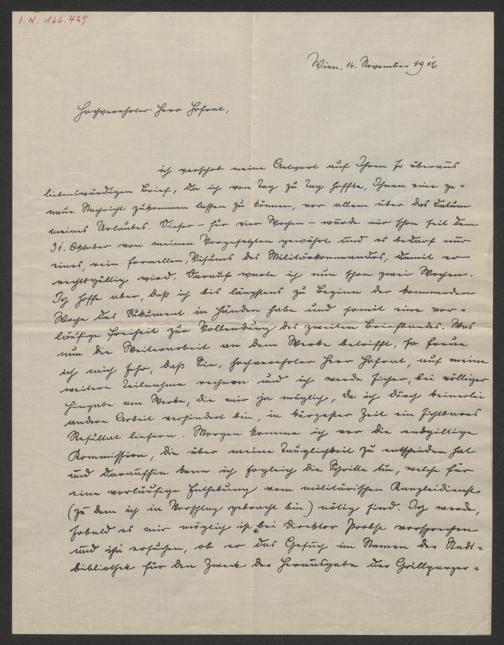 I.N. 166.429
Wien, 14. November 1916
Hochverehrter Herr Hofrat,
ich verschob meine Antwort auf Ihren so überaus
liebenswürdigen Brief, da ich von Tag zu Tag hoffte, Ihnen eine ge-
naue Nachricht zukommen lassen zu können, vor allem über das Datum
meines Urlaubes. Dieser – für vier Wochen – wurde mir schon seit dem
31. Oktober von meinen Vorgesetzten gewährt und es bedarf nur
eines, rein formellen, Visums des Militärkommandos, damit er
rechtsgültig wird. Darauf warte ich nun schon zwei Wochen.
Ich hoffe aber, daß ich bis längstens zu Beginn der kommenden
Woche das Dokument in Händen habe und somit eine vor-
läufige Freiheit zur Vollendung des zweiten Briefbandes. Was
nun die Weiterarbeit an dem Werke betrifft, so freue
ich mich sehr, daß Sie, hochverehrter Herr Hofrat, auf meine
weitere Teilnahme rechnen und ich werde sicher, bei völliger
Hingabe am Werke, die mir ja möglich, da ich durch keinerlei
andere Arbeit verhindert bin, in kürzester Zeit ein sichtbares
Resultat liefern. Morgen komme ich vor die endgiltige
Kommission, die über meine Tauglichkeit zu entscheiden hat
und daraufhin kann ich sogleich die Schritte tun, welche für
eine vorläufige Enthebung vom militärischen Kanzleidienste
(zu dem ich in Vorschlag gebracht bin) nötig sind. Ich werde,
sobald es mir möglich ist, bei Direktor Probst vorsprechen
und ihn ersuchen, ob er das Gesuch im Namen der Stadt-
bibliothek für den Zweck der Herausgabe der Grillparzer-